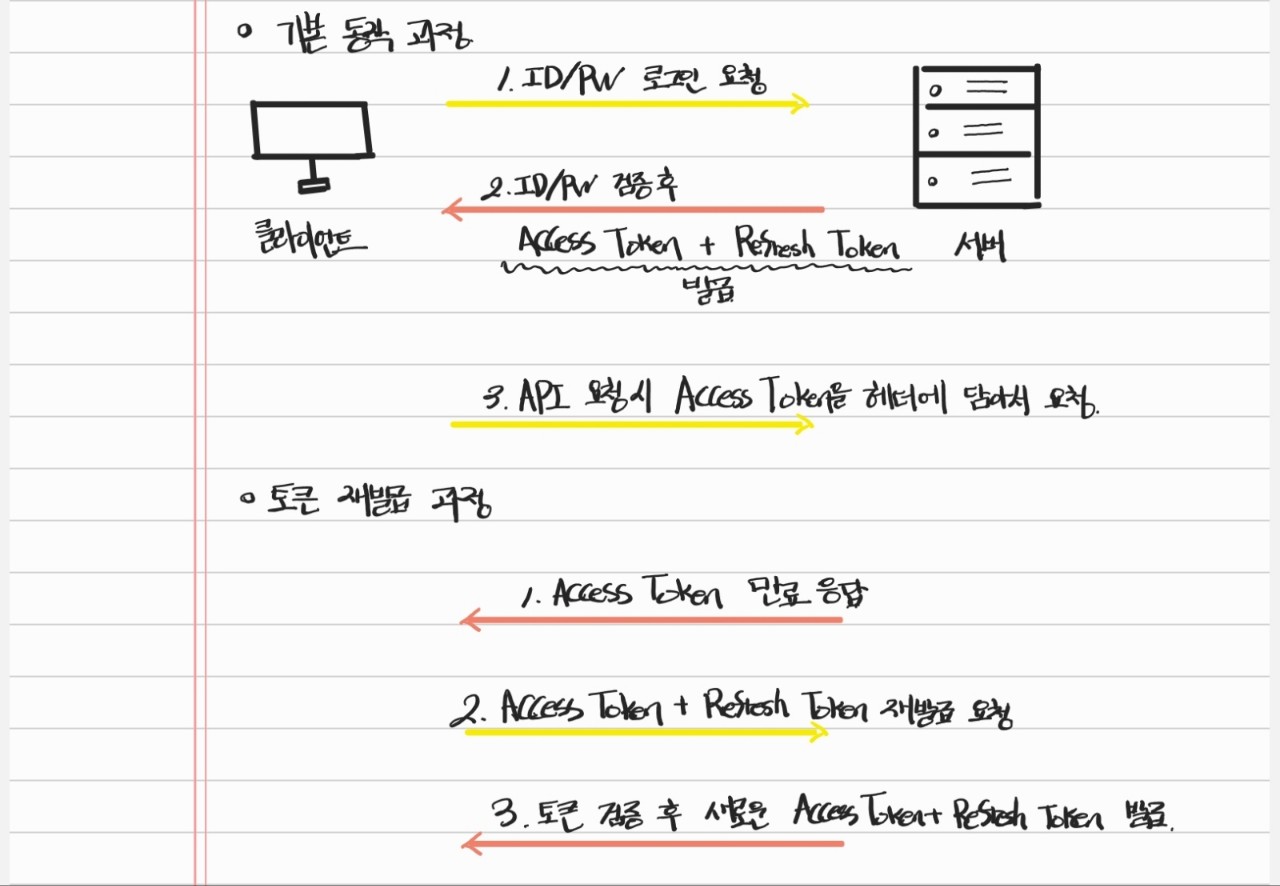 기본 동작 과정
1. ID/PW 로그인 요청
2. ID/PW 검증 후
클라이언트
Access Token + Refresh Token
서버
발급
3. API 요청시 Access Token을 헤더에 담아서 요청.
토큰 재발급 과정
1. Access Token 만료 응답
2. Access Token + Refresh Token 재발급 요청
3. 토큰 검증 후 새로운 Access Token + Refresh Token 발급.